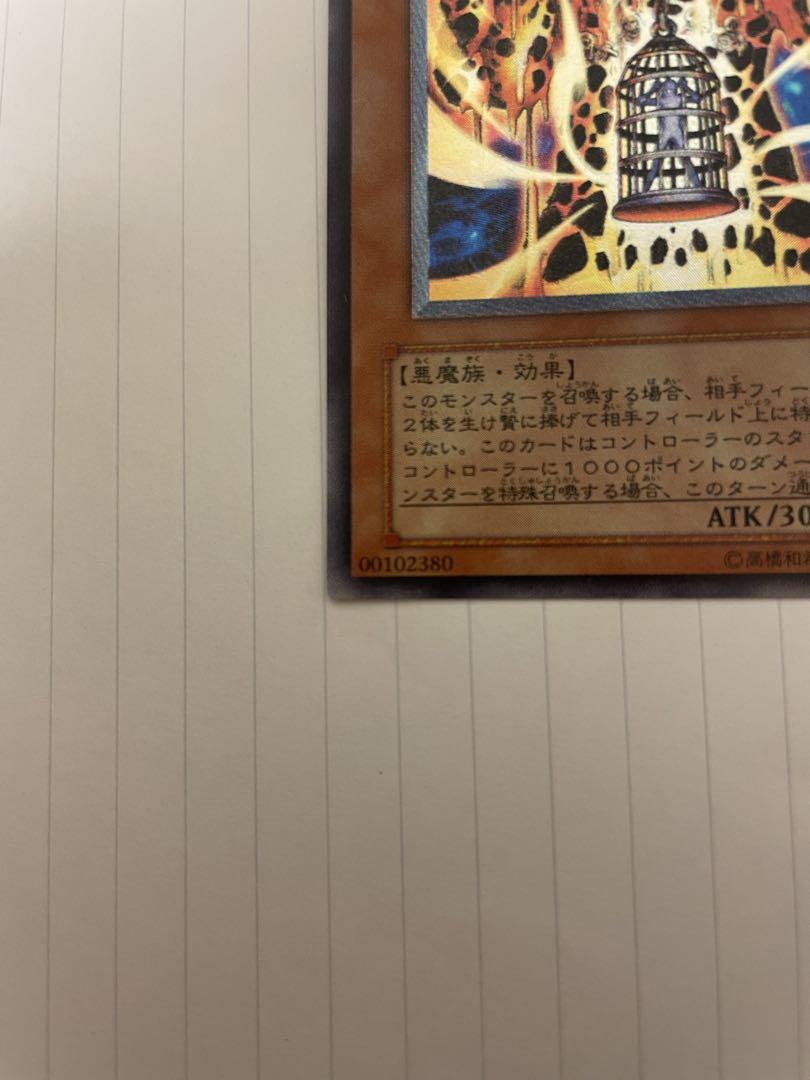 【悪魔族・効果】
このモンスターを召喚する場合、相手フィー
2体を生け贄に捧げて相手フィールド上に特
らない。このカードはコントローラーのスタ
コントローラーに1000ポイントのダメー
ンスターを特殊召喚する場合、このターン通
ATK/30
00102380
©高橋和